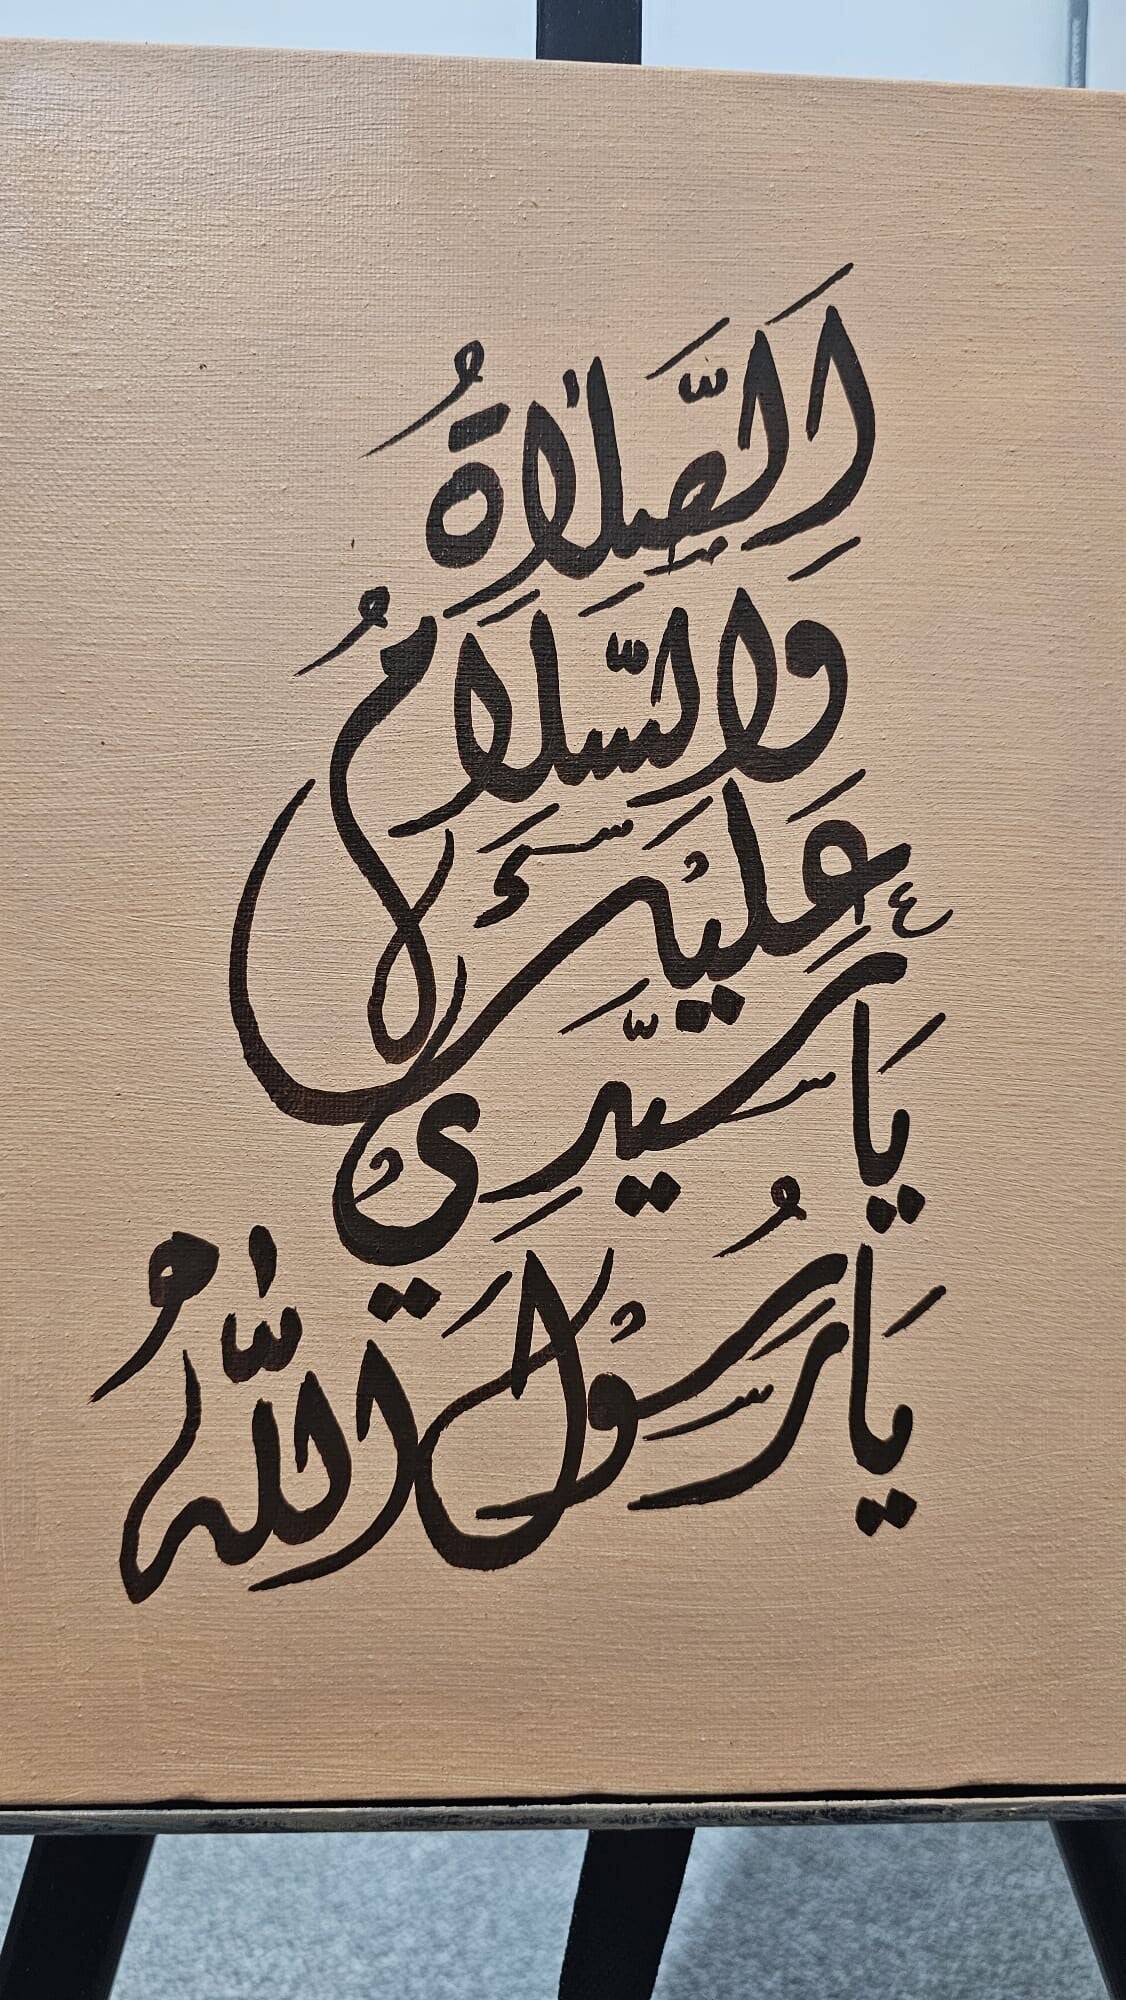 اَلصَّلَاةُ
وَالسَّلَامُ
عَلَيْكَ
يَا سَيِّدِيْ
يَا رَسُوْلَ اللّٰهُ